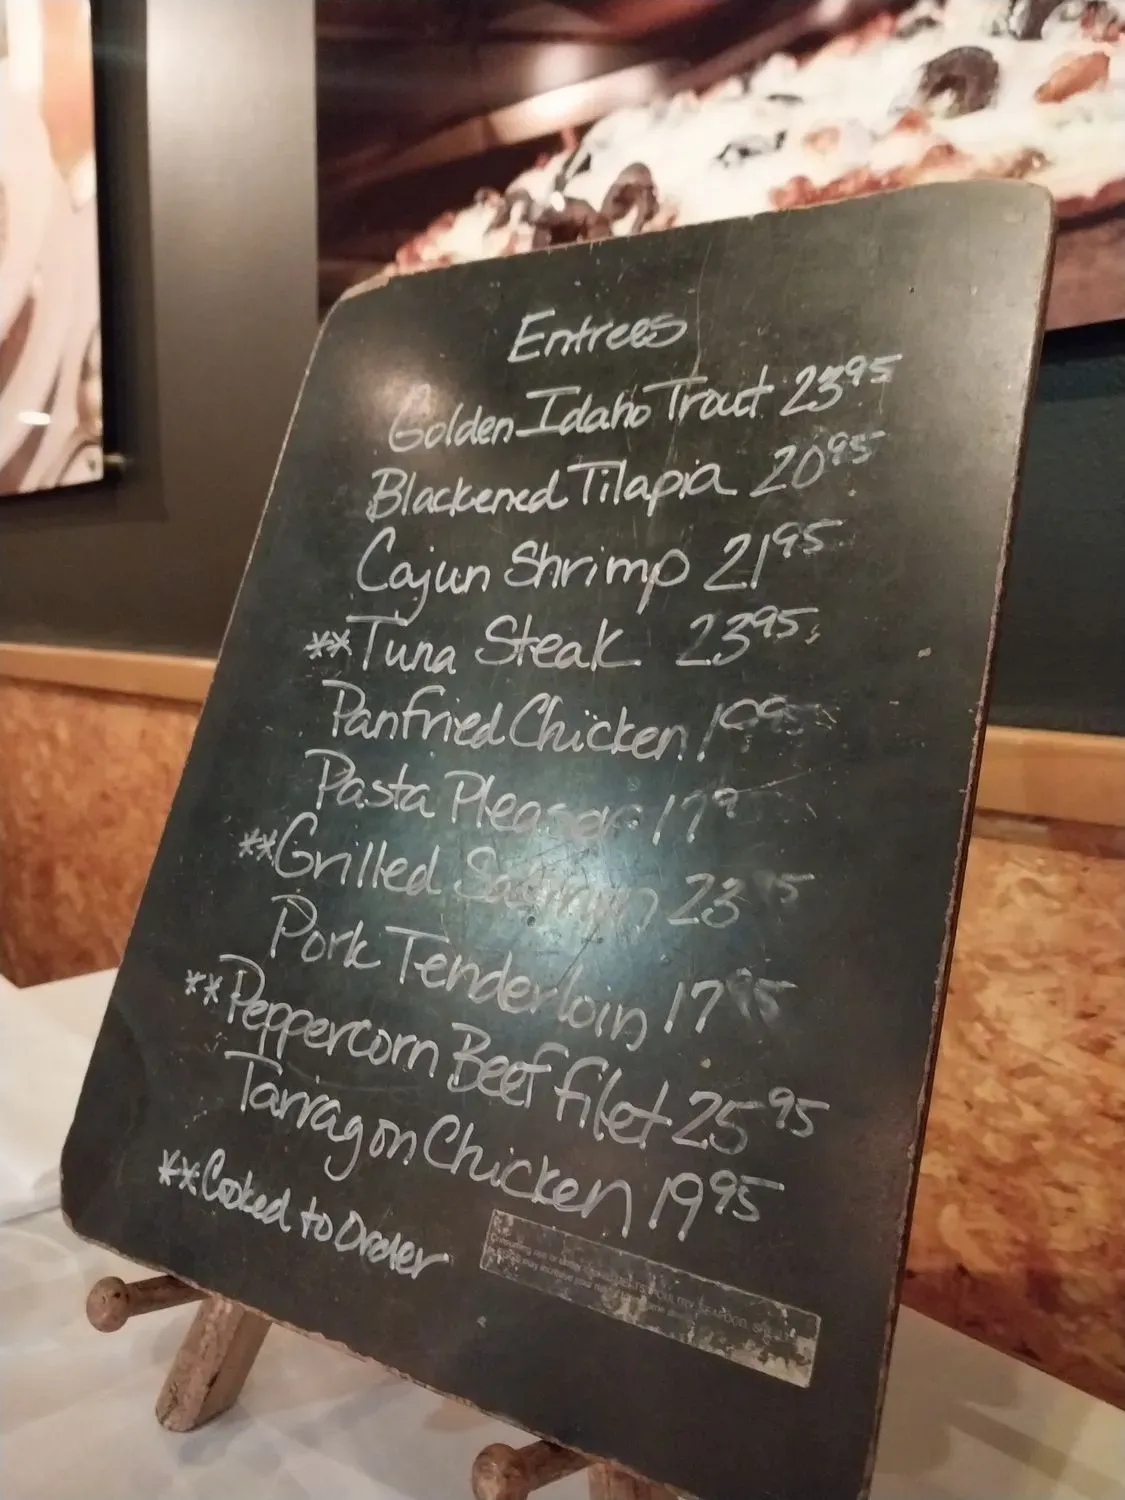 Entrees
Golden Idaho Trout 23 95
Blackened Tilapia 20 95
Cajun Shrimp 21 95
**Tuna Steak 23 95
Panfried Chicken 19 95
Pasta Pleaser 17 9
**Grilled Salmon 23 5
Pork Tenderloin 17 95
**Peppercorn Beef filet 25 95
Tarragon Chicken 19 95
**Cooked to Order